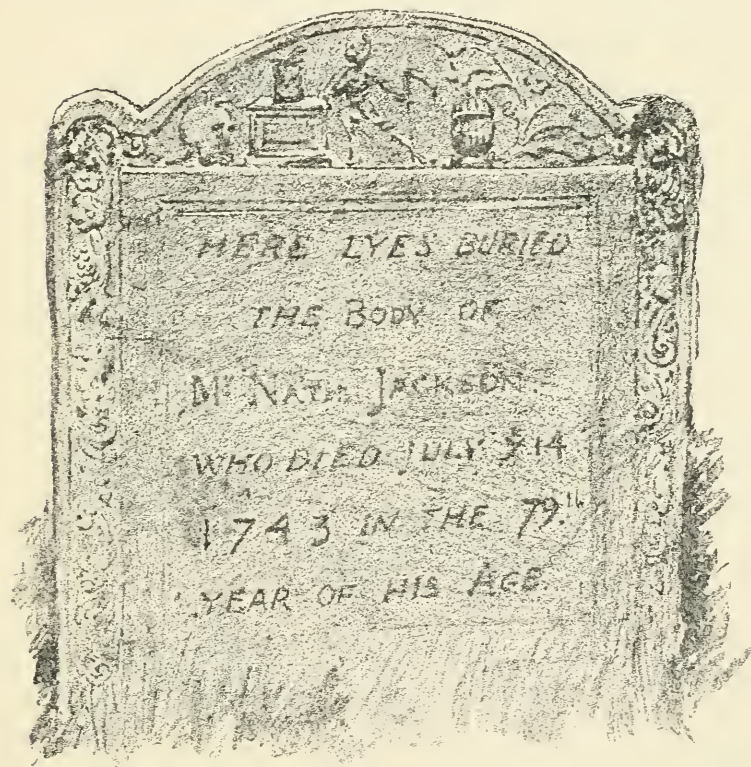 HERE LYES BURIED
THE BODY OF
Mr NATll JACKSON
WHO DIED JULY ye 14
1743 IN THE 79.th
YEAR OF HIS AGE